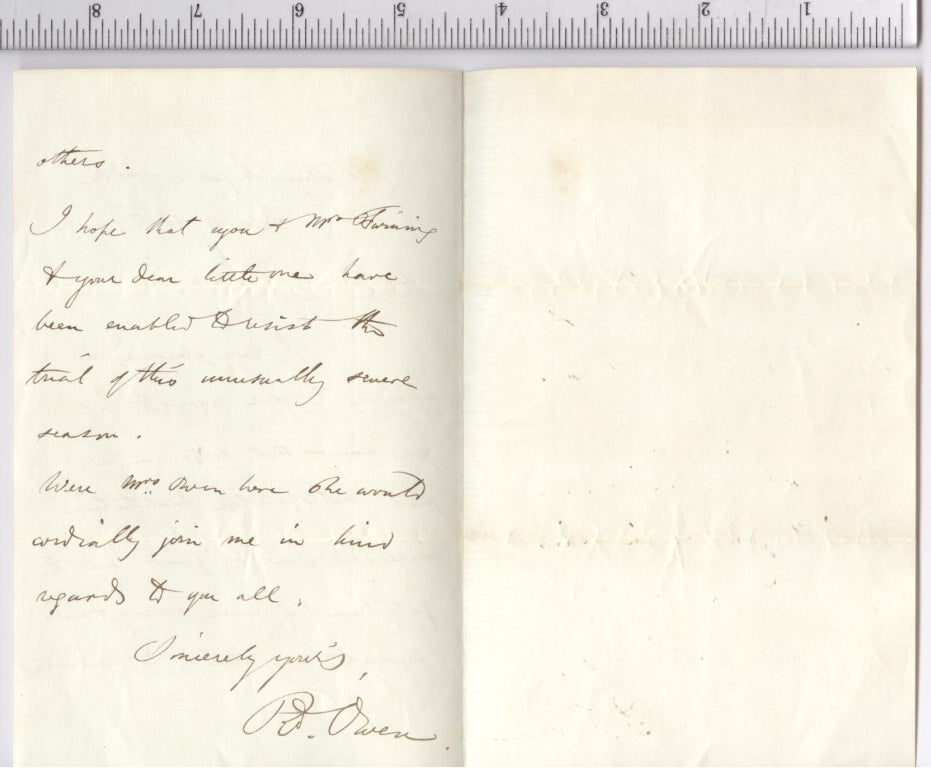 8 7 6 5 4 3 2 1
others.
I hope that you & Mrs Twining
& your dear little one have
been enabled to resist the
trial of this unusually severe
season.
Were Mrs. Owen here she would
cordially join me in kind
regards to you all,
Sincerely yours,
Rd. Owen.